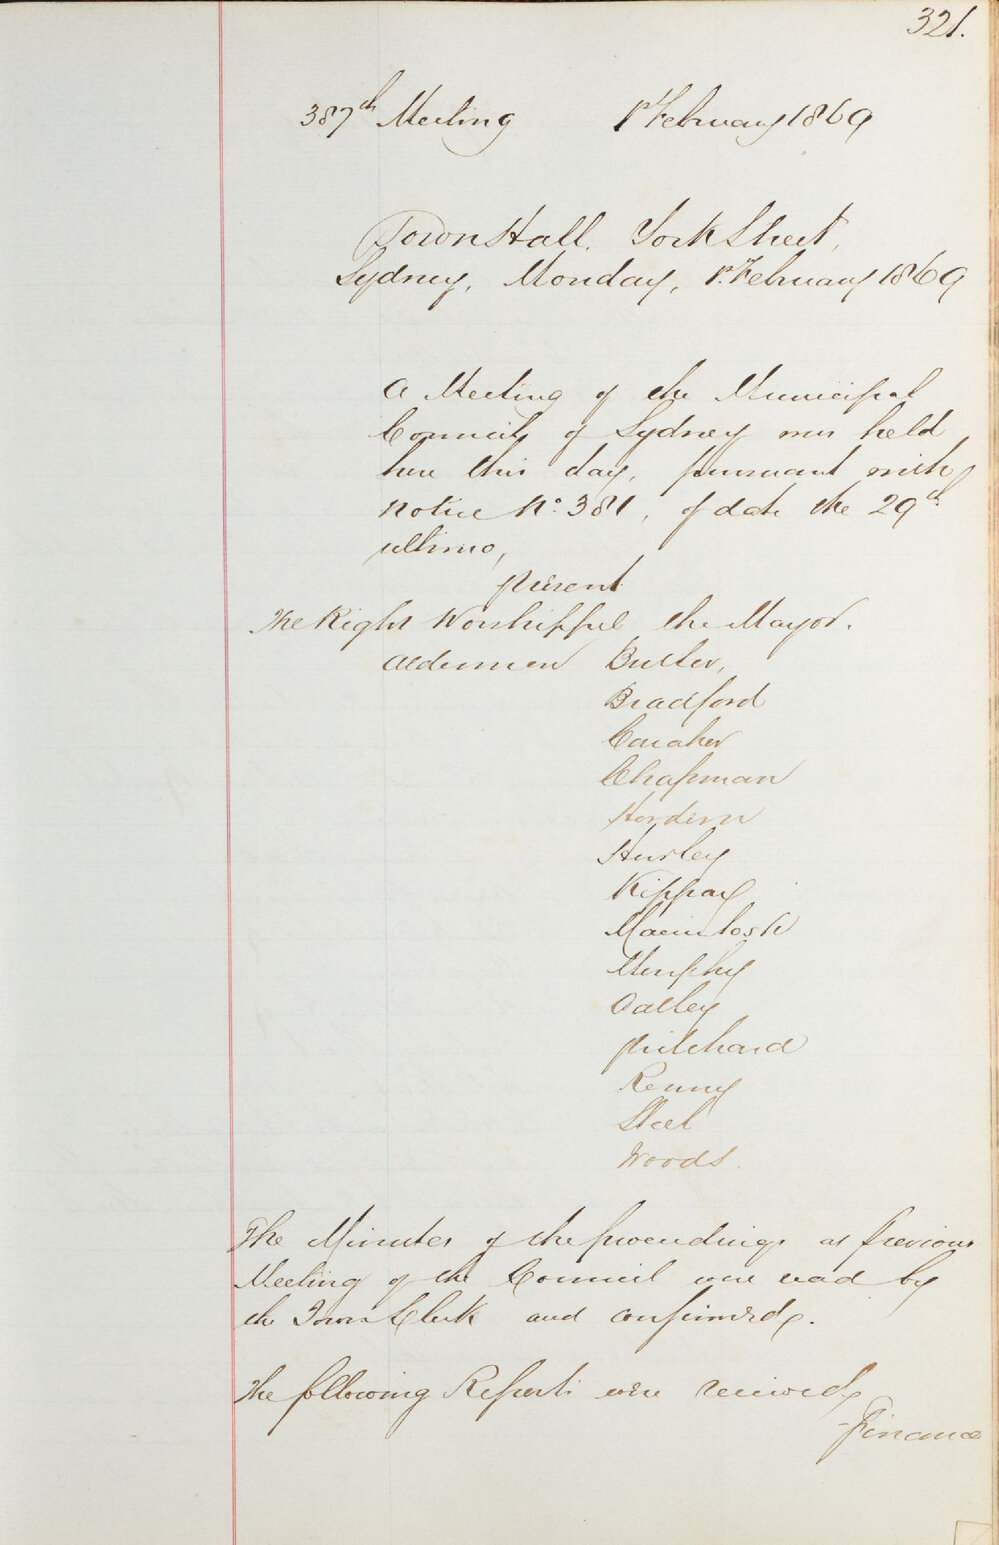 321.
387th Meeting 1st February 1869
Town Hall, York Street,
Sydney, Monday, 1st February 1869
A Meeting of the Municipal
Council of Sydney was held
here this day, pursuant with
notice No. 381, of date the 29th
ultimo,
present
The Right Worshipful the Mayor.
Aldermen Butler,
Bradford
Caraher
Chapman
Hordern
Hurley
Kippax
Macintosh
Murphy
Oatley
Pritchard
Renny
Steel
Woods
The Minutes of the proceedings at previous
Meeting of the Council were read by
the Town Clerk and confirmed.
The following Reports were received,
Finance